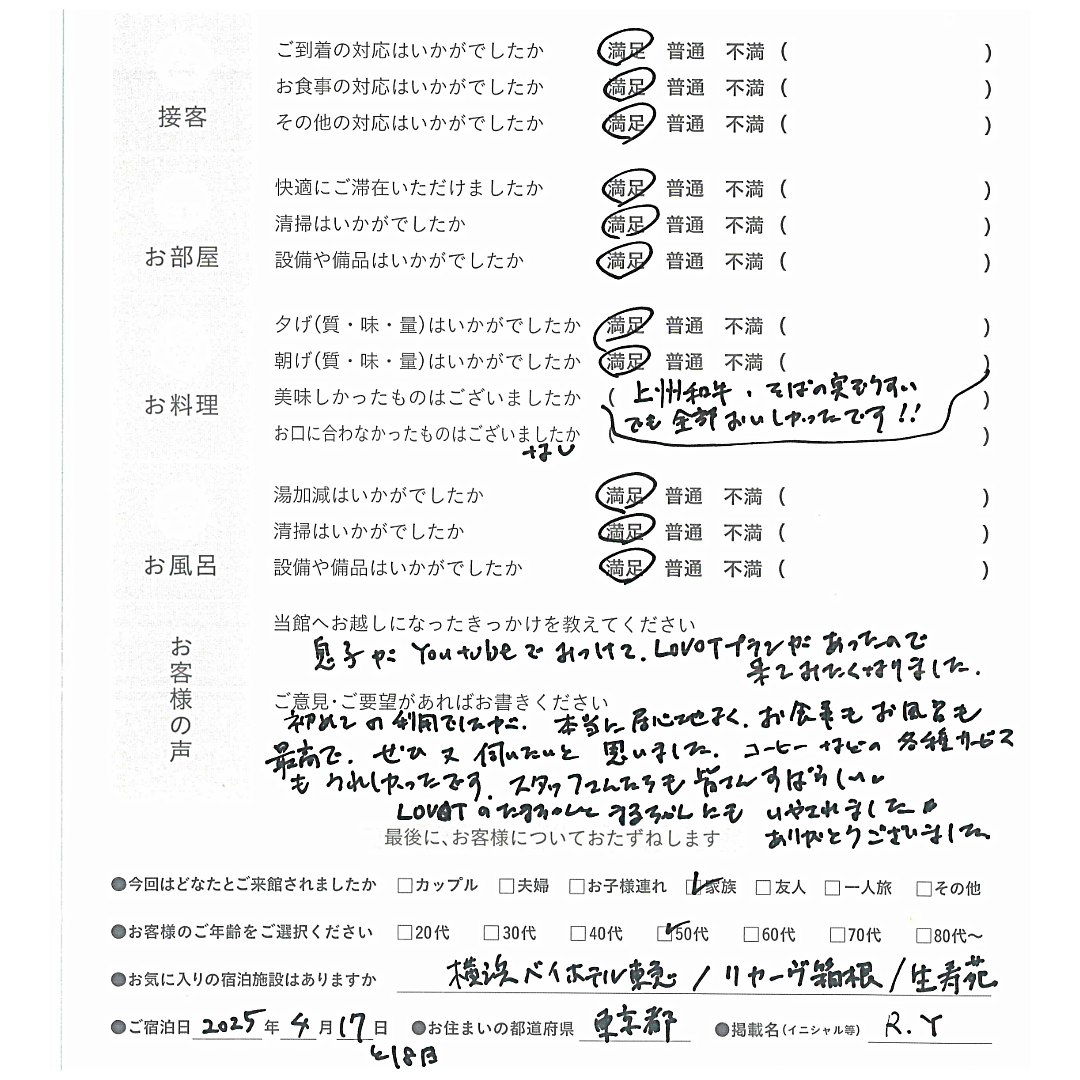 接客
ご到着の対応はいかがでしたか 満足 普通 不満 ( )
お食事の対応はいかがでしたか 満足 普通 不満 ( )
その他の対応はいかがでしたか 満足 普通 不満 ( )
お部屋
快適にご滞在いただけましたか 満足 普通 不満 ( )
清掃はいかがでしたか 満足 普通 不満 ( )
設備や備品はいかがでしたか 満足 普通 不満 ( )
お料理
夕げ(質・味・量)はいかがでしたか 満足 普通 不満 ( )
朝げ(質・味・量)はいかがでしたか 満足 普通 不満 ( )
美味しかったものはございましたか ( 上州和牛、そばの実ぞうすい )
でも全部おいしかったです!!
お口に合わなかったものはございましたか ( )
なし
お風呂
湯加減はいかがでしたか 満足 普通 不満 ( )
清掃はいかがでしたか 満足 普通 不満 ( )
設備や備品はいかがでしたか 満足 普通 不満 ( )
お客様の声
当館へお越しになったきっかけを教えてください
息子がYoutubeでみつけて、LOVOTプランがあったので
来てみたくなりました。
ご意見・ご要望があればお書きください
初めての利用でしたが、本当に居心地よく、お食事もお風呂も
最高で、ぜひ又伺いたいと思いました。コーヒーなどの各種サービス
もうれしかったです。スタッフさんたちも皆さんすばらしい。
LOVOTの にもいやされました。
ありがとうございました。
最後に、お客様についておたずねします
●今回はどなたとご来館されましたか □カップル □夫婦 □お子様連れ □家族 □友人 □一人旅 □その他
●お客様のご年齢をご選択ください □20代 □30代 □40代 □50代 □60代 □70代 □80代〜
●お気に入りの宿泊施設はありますか 横浜ベイホテル東急/リカーヴ箱根/生寿苑
●ご宿泊日 2025年4月17日 ●お住まいの都道府県 東京都 ●掲載名(イニシャル等) R.Y
と18日